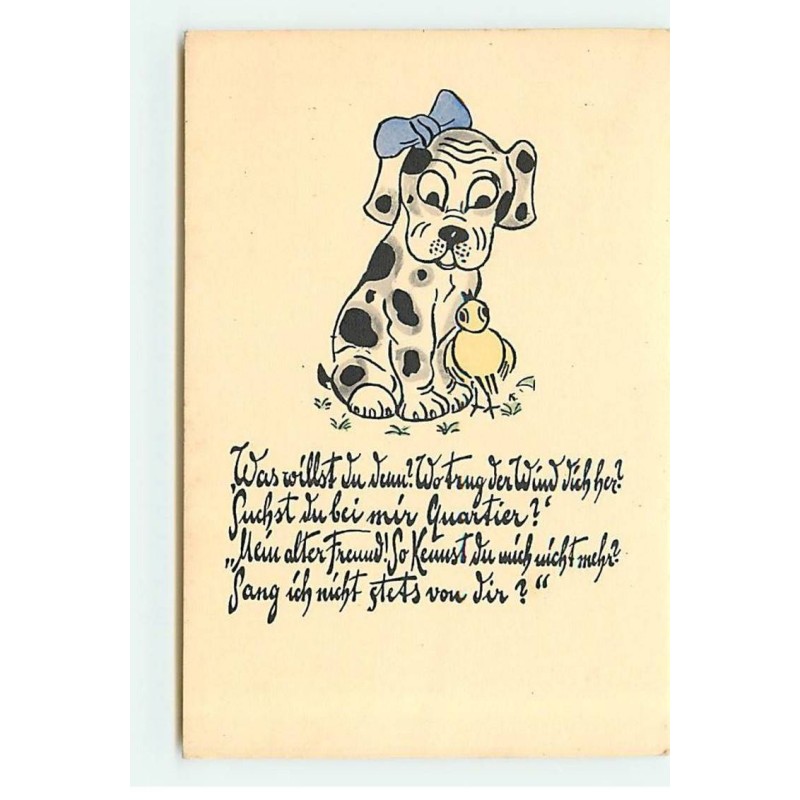 „Was willst du denn? Wo trug der Wind dich her?
Suchst du bei mir Quartier?“
„Mein alter Freund! So kennst du mich nicht mehr?
Sang ich nicht stets von dir?“